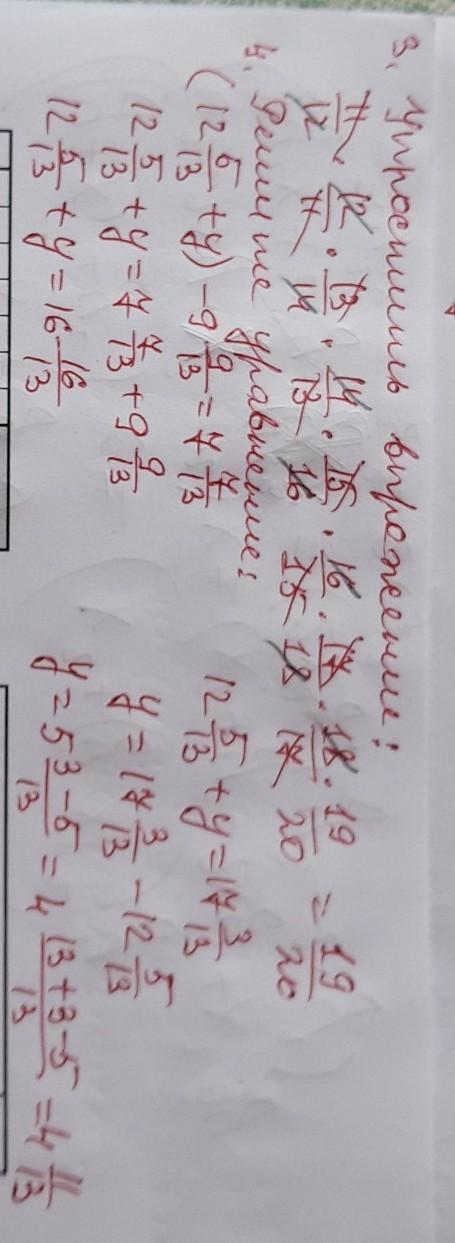 3. Упростить выражение:
11/12 · 12/11 · 13/14 · 14/13 · 15/16 · 16/15 · 17/18 · 18/17 · 19/20 = 19/20
4. Решите уравнение:
(12 5/13 + y) - 9 9/13 = 7 7/13
12 5/13 + y = 7 7/13 + 9 9/13
12 5/13 + y = 16 16/13
12 5/13 + y = 17 3/13
y = 17 3/13 - 12 5/13
y = 5 (3-5)/13 = 4 (13+3-5)/13 = 4 11/13